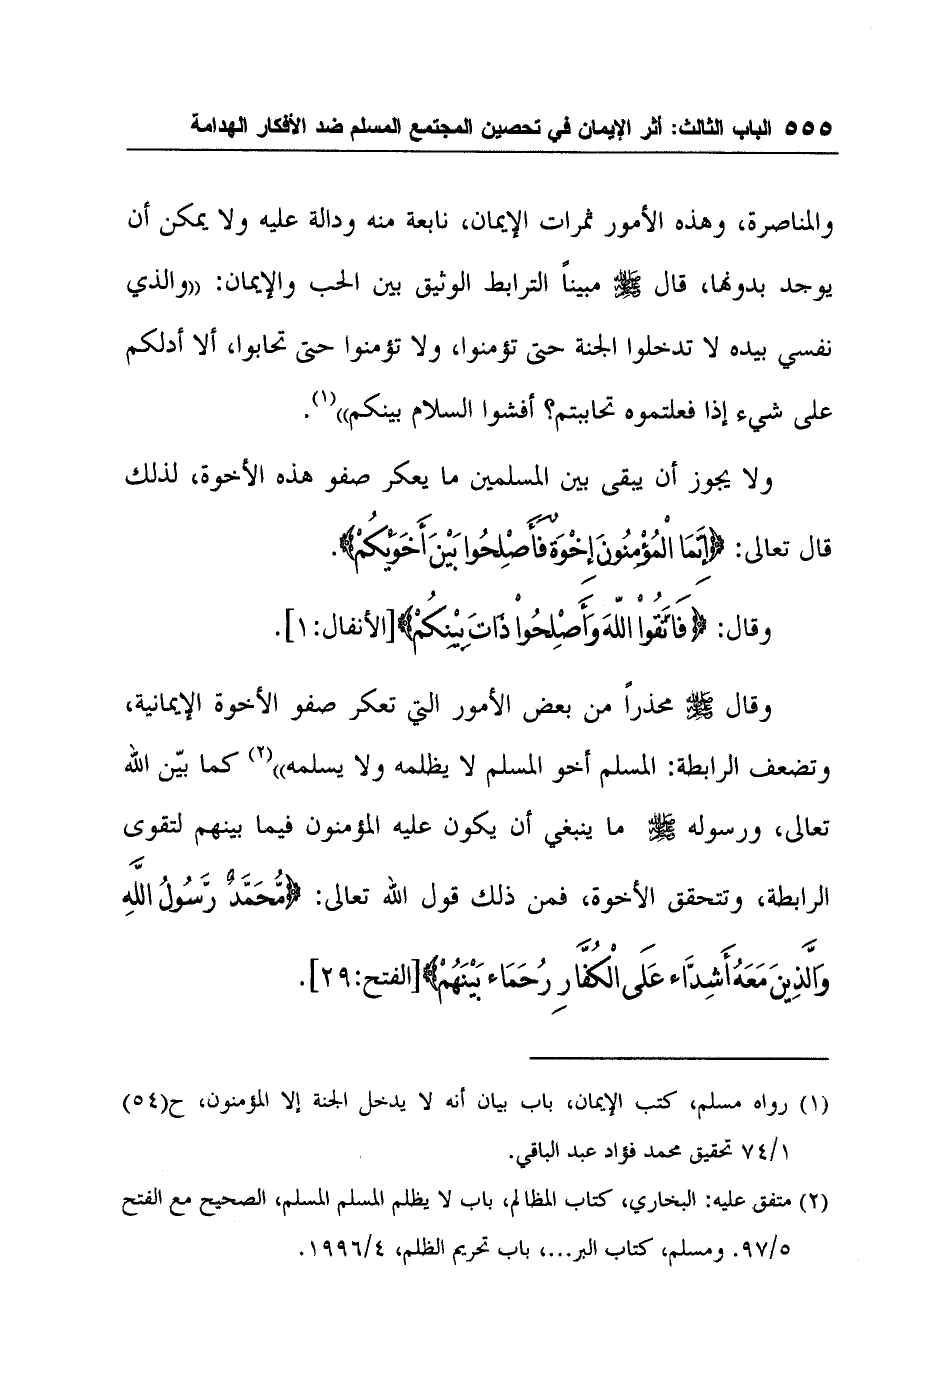 ٥٥٥ الباب الثالث: أثر الإيمان في تحصين المجتمع المسلم ضد الأفكار الهدامة
والمناصرة، وهذه الأمور ثمرات الإيمان، نابعة منه ودالة عليه ولا يمكن أن
يوجد بدونها، قال ﷺ مبيناً الترابط الوثيق بين الحب والإيمان: ((والذي
نفسي بيده لا تدخلوا الجنة حتى تؤمنوا، ولا تؤمنوا حتى تحابوا، ألا أدلكم
على شيء إذا فعلتموه تحاببتم؟ أفشوا السلام بينكم))(١).
ولا يجوز أن يبقى بين المسلمين ما يعكر صفو هذه الأخوة، لذلك
قال تعالى: ﴿إِنَّمَا الْمُؤْمِنُونَ إِخْوَةٌ فَأَصْلِحُوا بَيْنَ أَخَوَيْكُمْ﴾.
وقال: ﴿فَاتَّقُواْ اللّهَ وَأَصْلِحُواْ ذَاتَ بِيْنِكُمْ﴾[الأنفال:١].
وقال ﷺ محذراً من بعض الأمور التي تعكر صفو الأخوة الإيمانية،
وتضعف الرابطة: المسلم أخو المسلم لا يظلمه ولا يسلمه))(٢) كما بيّن الله
تعالى، ورسوله ﷺ ما ينبغي أن يكون عليه المؤمنون فيما بينهم لتقوى
الرابطة، وتتحقق الأخوة، فمن ذلك قول الله تعالى: ﴿مُّحَمَّدٌ رَّسُولُ اللَّهِ
وَالَّذِينَ مَعَهُ أَشِدَّاء عَلَى الْكُفَّارِ رُحَمَاء بَيْنَهُمْ﴾[الفتح:٢٩].
(١) رواه مسلم، كتب الإيمان، باب بيان أنه لا يدخل الجنة إلا المؤمنون، ح(٥٤)
٧٤/١ تحقيق محمد فؤاد عبد الباقي.
(٢) متفق عليه: البخاري، كتاب المظالم، باب لا يظلم المسلم المسلم، الصحيح مع الفتح
٩٧/٥. ومسلم، كتاب البر...، باب تحريم الظلم، ١٩٩٦/٤.